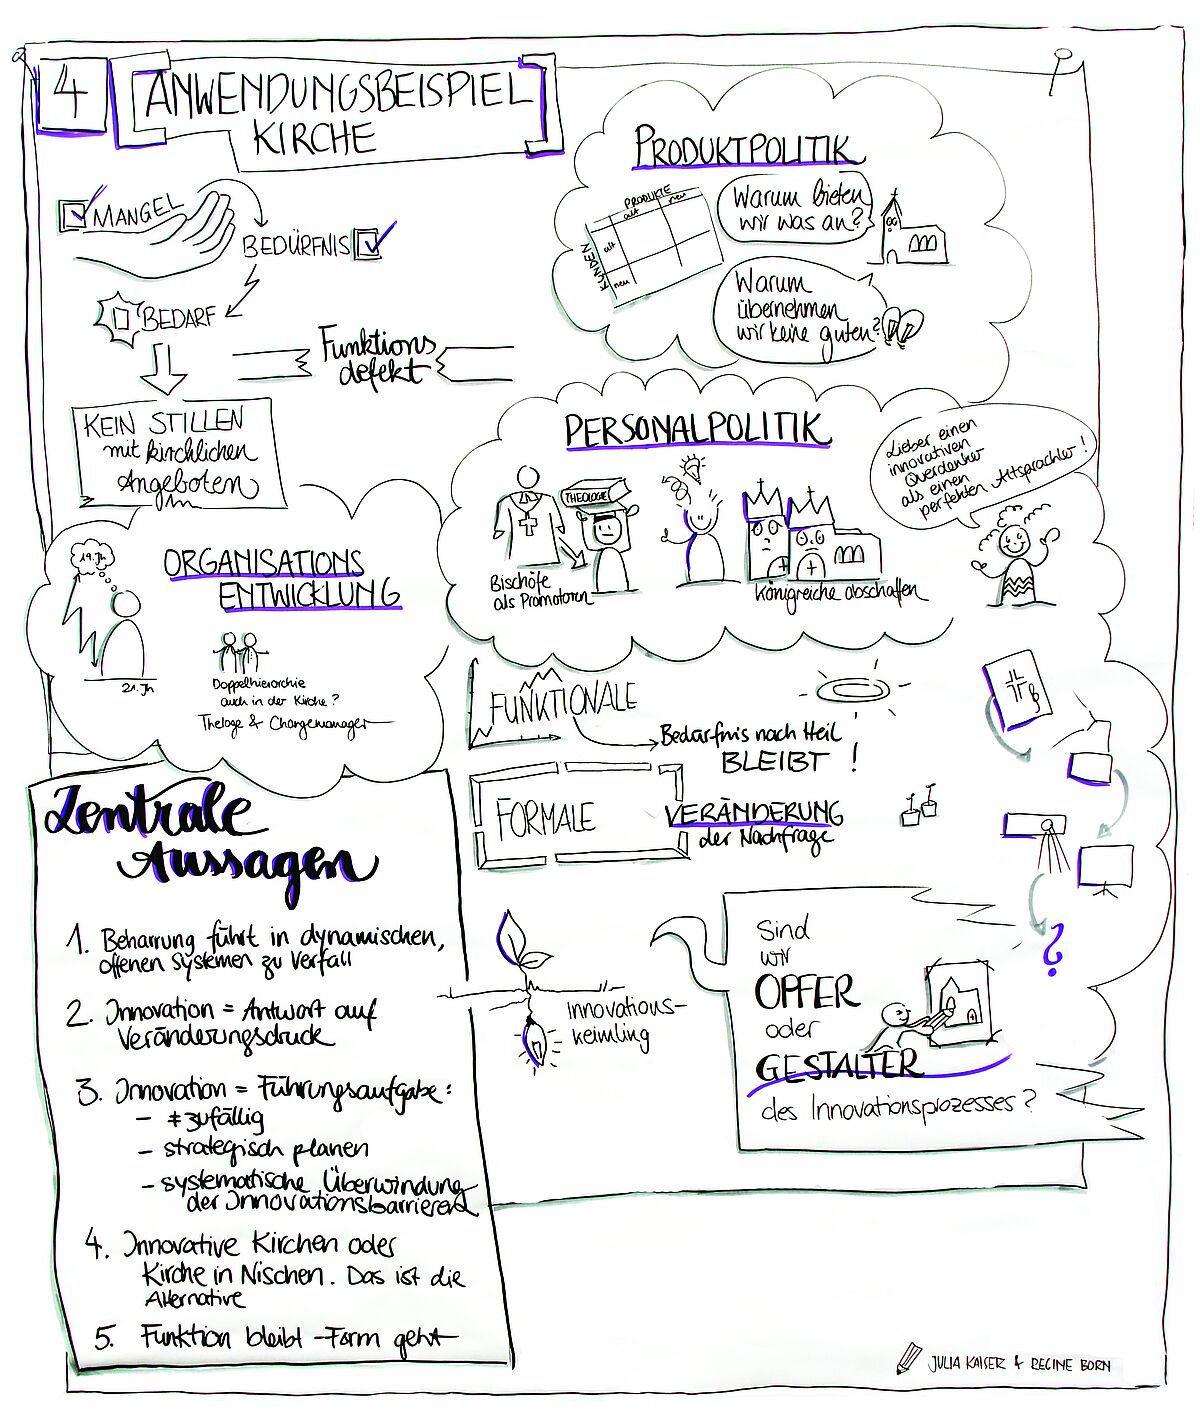 4
ANWENDUNGSBEISPIEL
KIRCHE
MANGEL
BEDÜRFNIS
BEDARF
Funktions
defekt
KEIN STILLEN
mit kirchlichen
Angeboten
PRODUKTPOLITIK
PRODUKTE
alt neu
KUNDEN
alt
neu
Warum bieten
wir was an?
Warum
übernehmen
wir keine guten?
PERSONALPOLITIK
THEOLOGIE
Bischöfe
als Promotoren
Königreiche abschaffen
Lieber einen
innovativen
Querdenker
als einen
perfekten Altsprachler!
ORGANISATIONS
ENTWICKLUNG
19. Jh
21. Jh
Doppelhierarchie
auch in der Kirche?
Theloge & Changemanager
FUNKTIONALE
Bedürfnis nach Heil
BLEIBT!
FORMALE
VERÄNDERUNG
der Nachfrage
Innovations-
keimling
?
Sind
wir
OPFER
oder
GESTALTER
des Innovationsprozesses?
Zentrale
Aussagen
1. Beharrung führt in dynamischen,
offenen Systemen zu Verfall
2. Innovation = Antwort auf
Veränderungsdruck
3. Innovation = Führungsaufgabe:
- ≠ zufällig
- strategisch planen
- systematische Überwindung
der Innovationsbarrieren
4. Innovative Kirchen oder
Kirche in Nischen. Das ist die
Alternative
5. Funktion bleibt - Form geht
JULIA KAISER & REGINE BORN